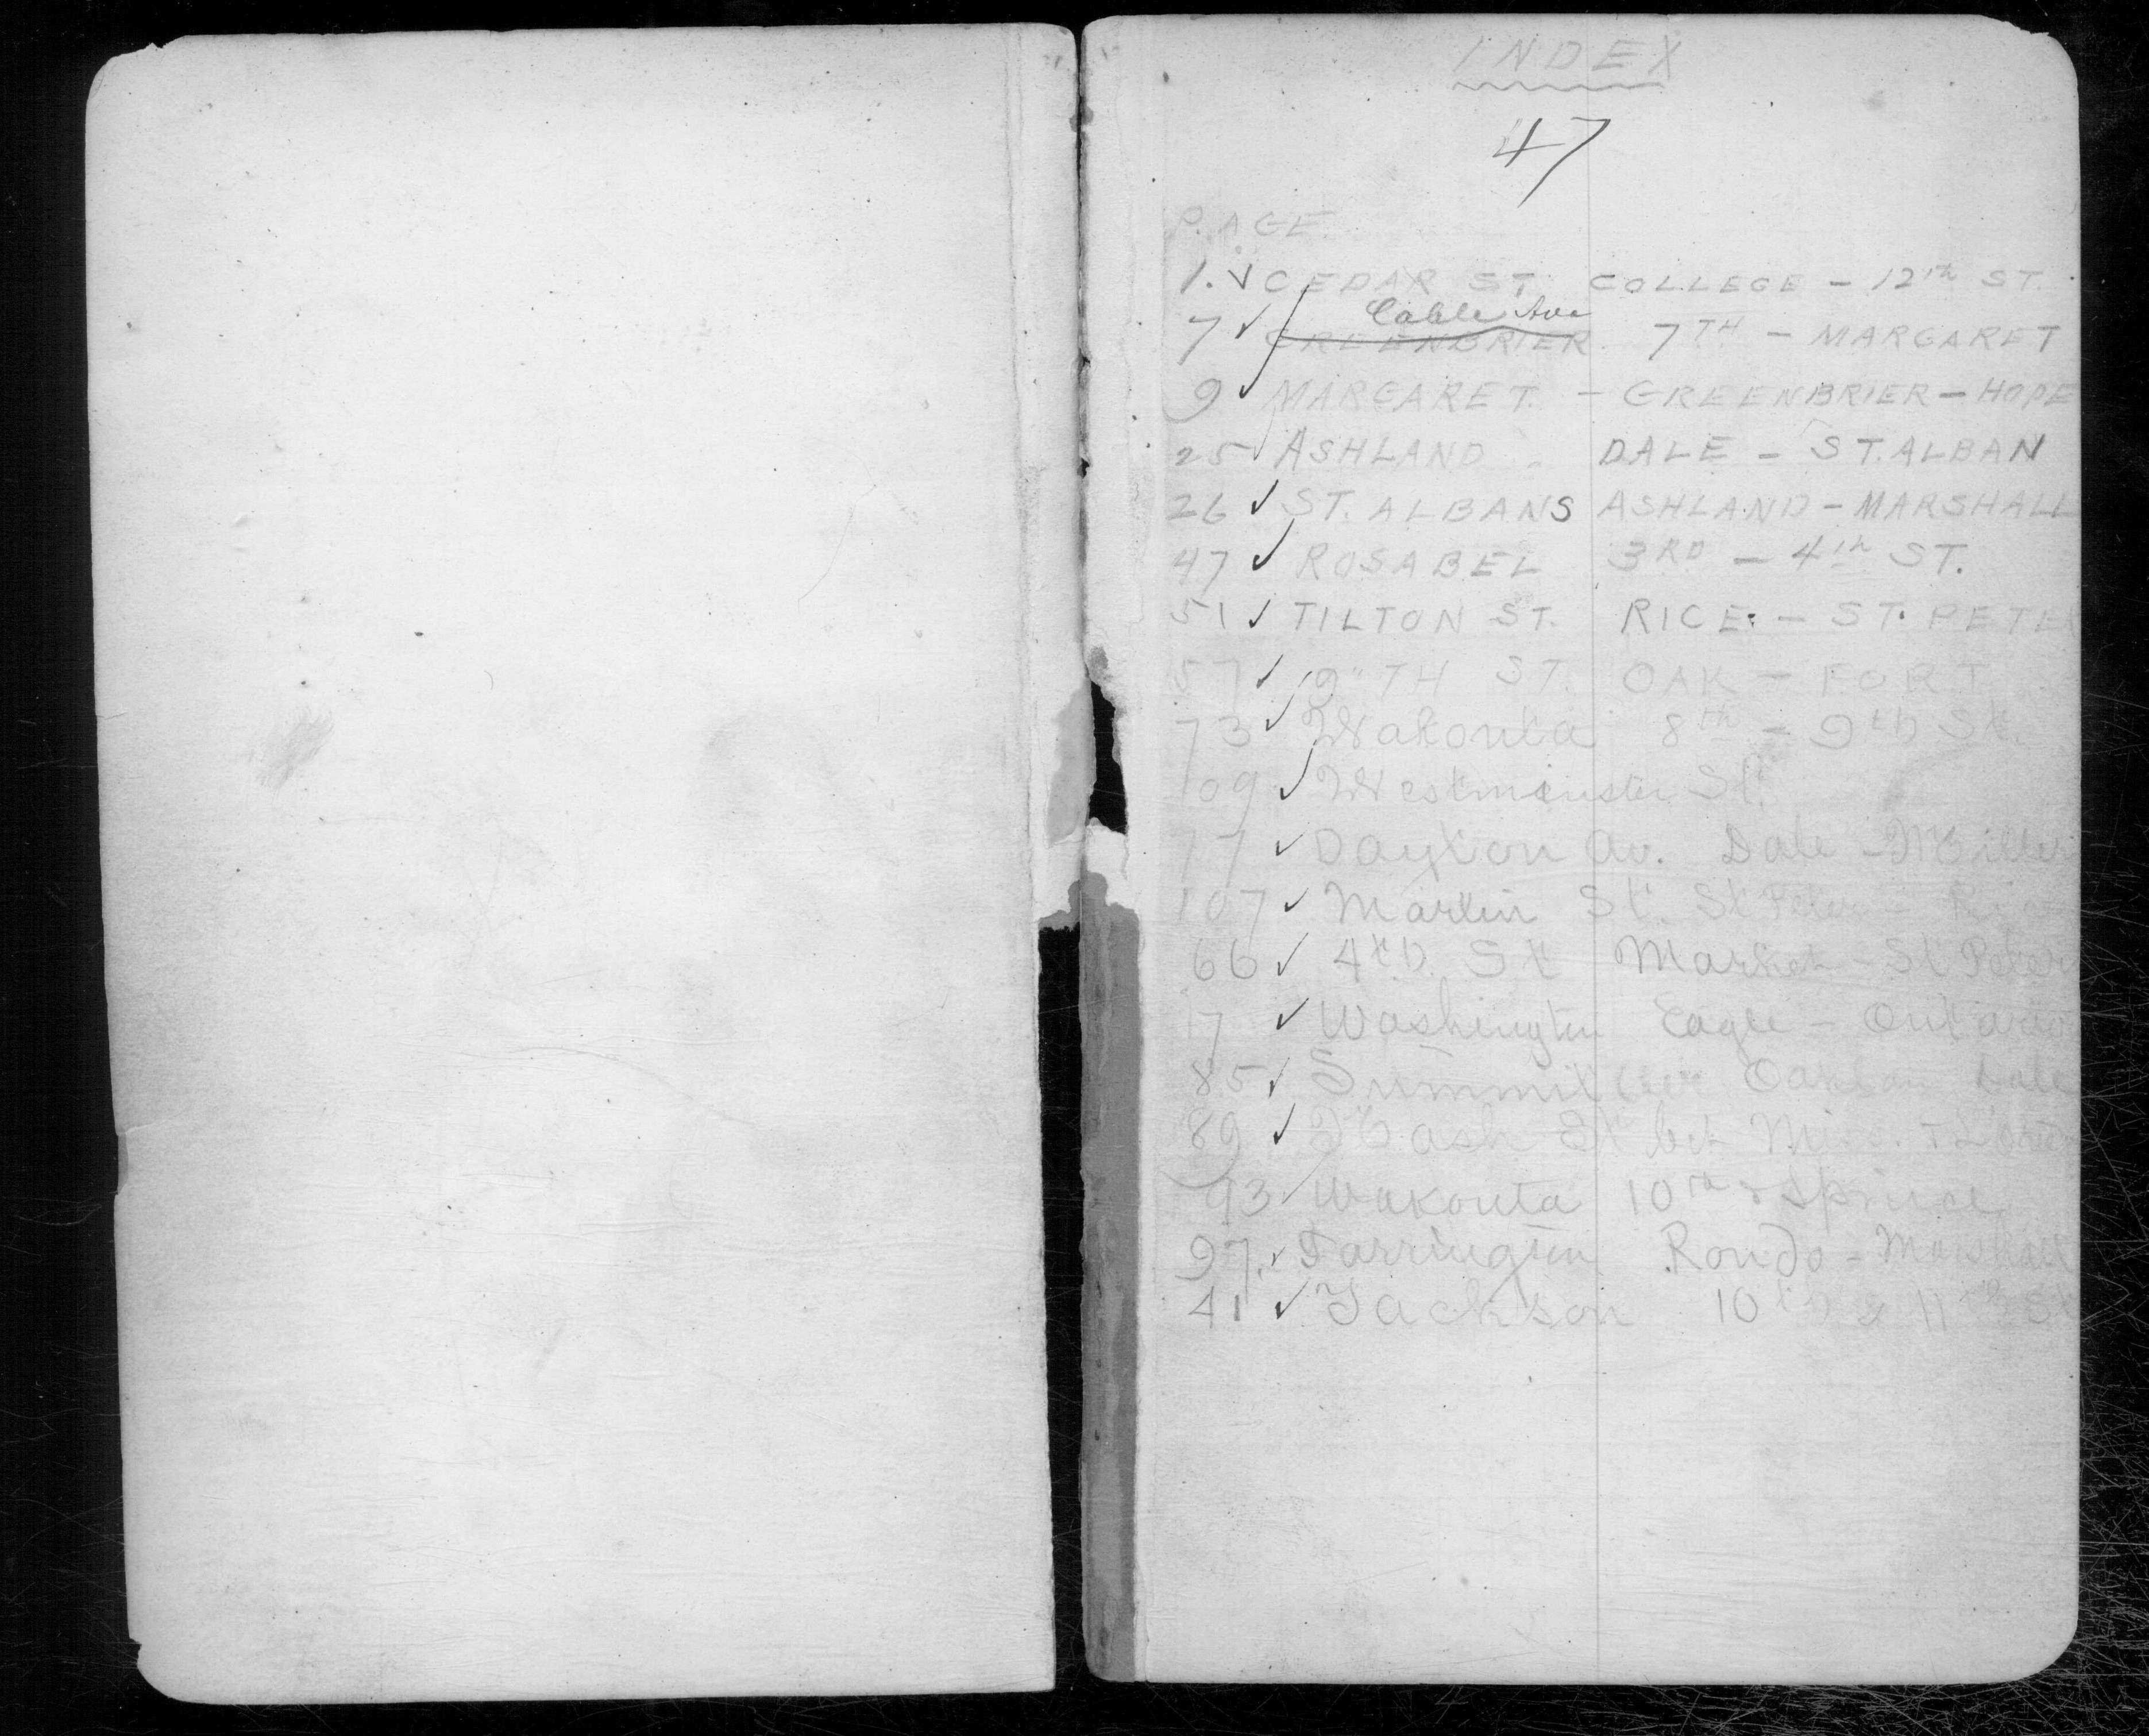 INDEX
47
PAGE.
1. ✓ CEDAR ST. COLLEGE - 12th ST.
Cable Ave
7 ✓ GREENBRIER. 7TH - MARGARET
9 ✓ MARGARET. - GREENBRIER - HOPE
25 ✓ ASHLAND DALE - ST. ALBAN
26 ✓ ST. ALBANS ASHLAND - MARSHALL
47 ✓ ROSABEL 3RD - 4th ST.
51 ✓ TILTON ST. RICE. - ST. PETE
57 ✓ 9"TH ST. OAK - FORT
73 ✓ Wakouta 8th - 9th St.
109 ✓ Westminster St.
77 ✓ Dayton Av. Dale -
107 ✓ Martin St. St Peter -
66 ✓ 4th St Market - St Peter
17 ✓ Washington Eagle - Ontario
85 ✓ Summit Ave Dale
89 ✓ St bet
93 ✓ Wakouta 10th & Spruce
97. ✓ Farrington Rondo - Marshall
41 ✓ Jackson 10th & 11th St